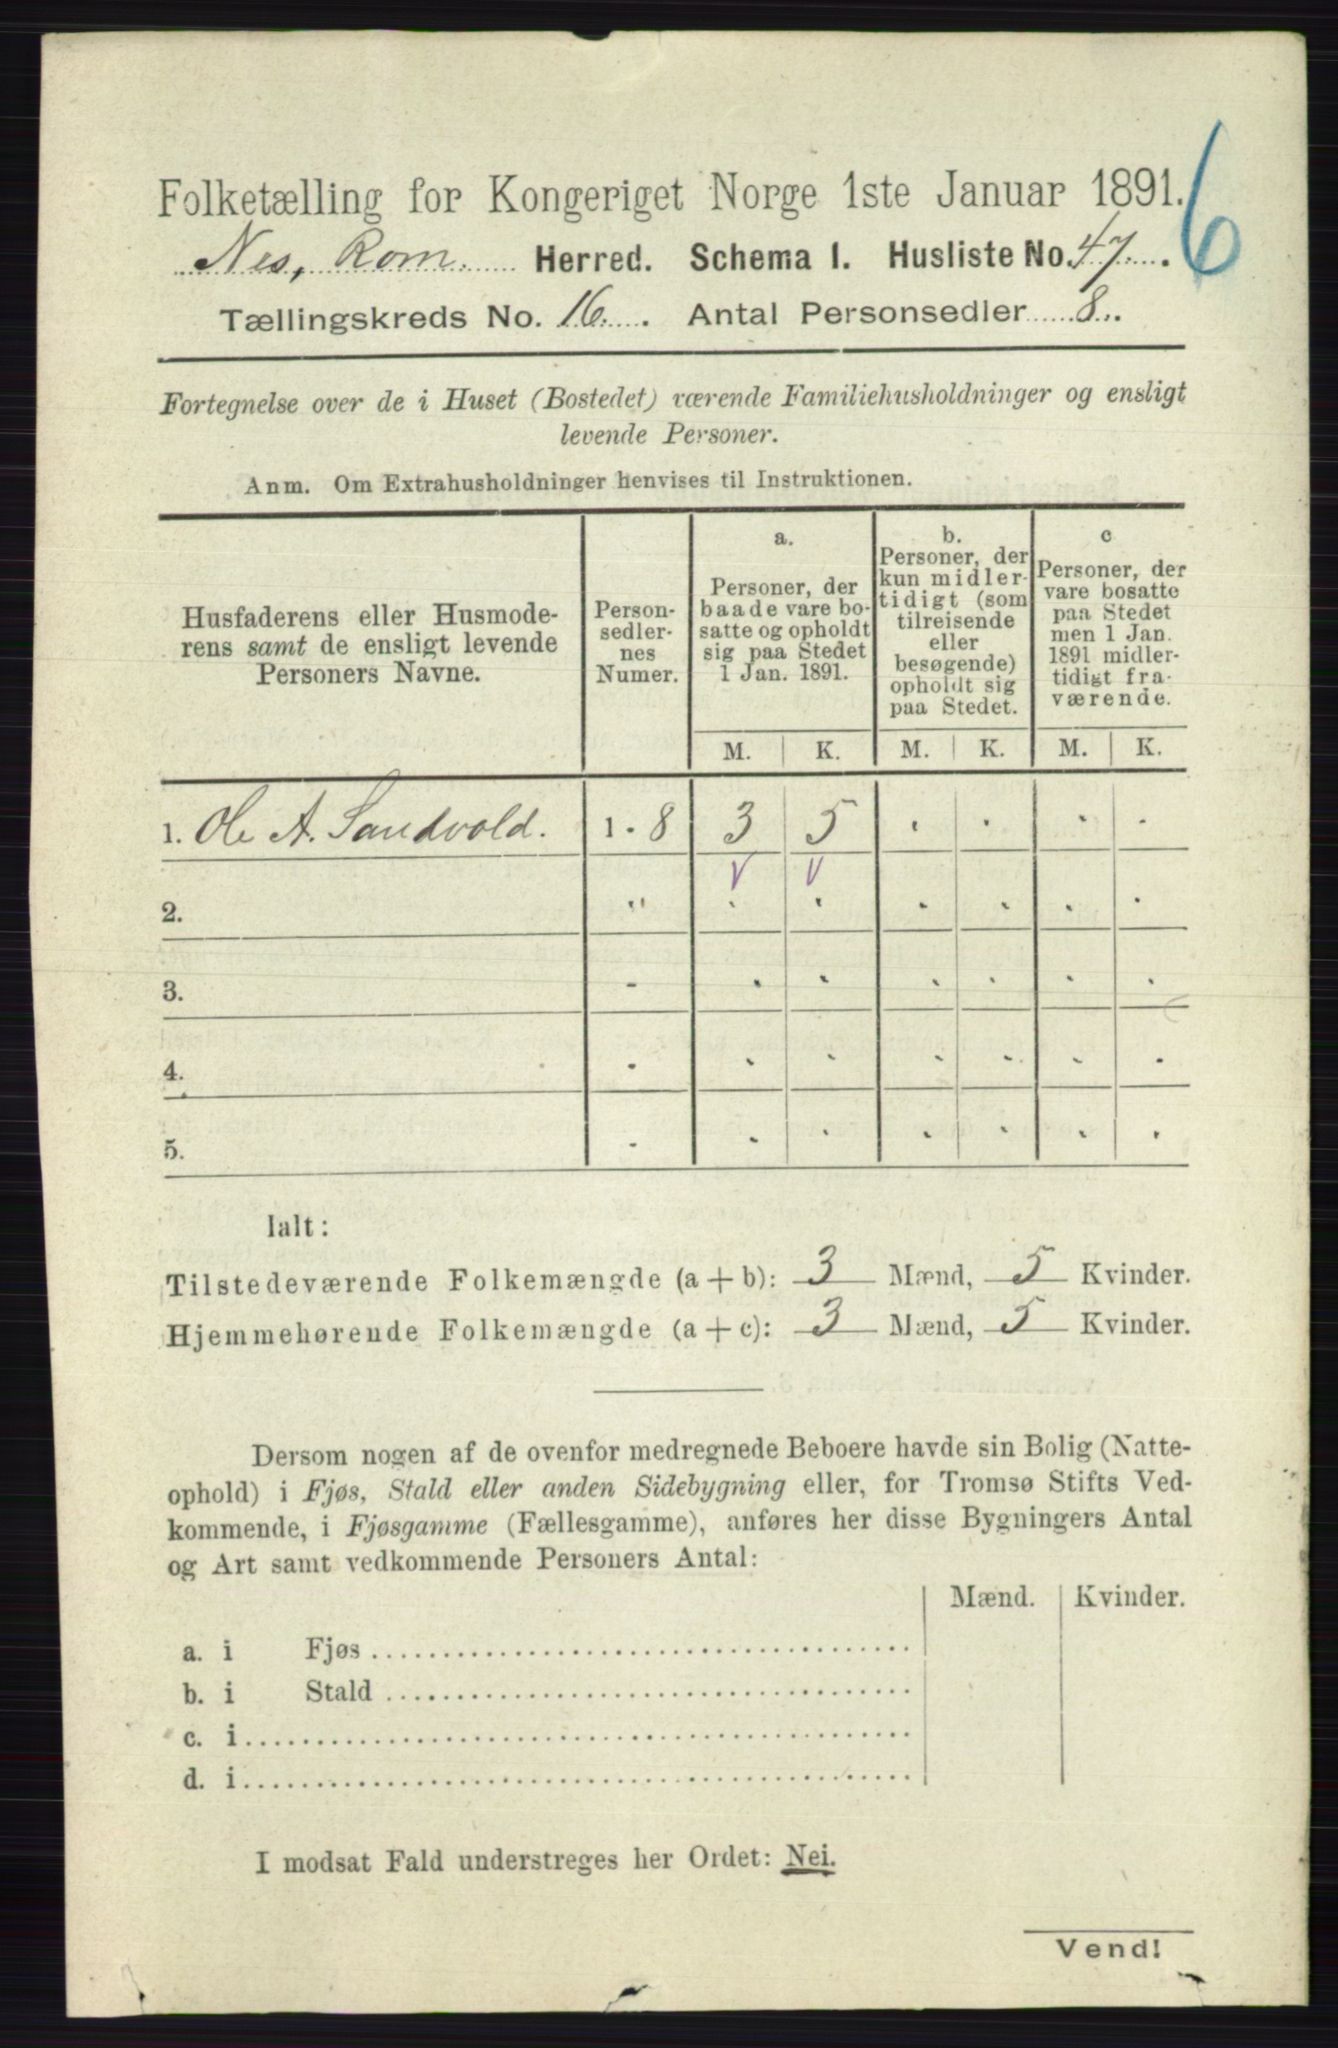 6
Folketælling for Kongeriget Norge 1ste Januar 1891.
Nes, Rom. Herred. Schema 1. Husliste No. 47.
Tællingskreds No. 16. Antal Personsedler 8.
Fortegnelse over de i Huset (Bostedet) værende Familiehusholdninger og ensligt
levende Personer.
Anm. Om Extrahusholdninger henvises til Instruktionen.
Husfaderens eller Husmode-
rens samt de ensligt levende
Personers Navne.
Person-
sedler-
nes
Numer.
a.
Personer, der
baade vare bo-
satte og opholdt
sig paa Stedet
1 Jan. 1891.
b.
Personer, der
kun midler-
tidigt (som
tilreisende
eller
besøgende)
opholdt sig
paa Stedet.
c
Personer, der
vare bosatte
paa Stedet
men 1 Jan.
1891 midler-
tidigt fra-
værende.
M. K. M. K. M. K.
1. Ole A. Sandvold. 1 - 8 3 5 . . . .
V V
2. " . . . . . .
3. - . . . . . .
4. - . . . . . .
5. - . . . . . .
Ialt:
Tilstedeværende Folkemængde (a + b): 3 Mænd, 5 Kvinder.
Hjemmehørende Folkemængde (a + c): 3 Mænd, 5 Kvinder.
Dersom nogen af de ovenfor medregnede Beboere havde sin Bolig (Natte-
ophold) i Fjøs, Stald eller anden Sidebygning eller, for Tromsø Stifts Ved-
kommende, i Fjøsgamme (Fællesgamme), anføres her disse Bygningers Antal
og Art samt vedkommende Personers Antal:
Mænd. Kvinder.
a. i Fjøs
b. i Stald
c. i
d. i
I modsat Fald understreges her Ordet: Nei.
Vend!